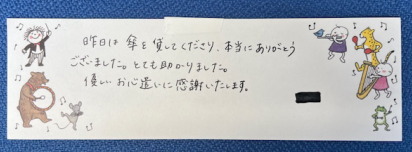 昨日は傘を貸してくださり、本当にありがとう
ございました。とても助かりました。
優しいお心遣いに感謝いたします。